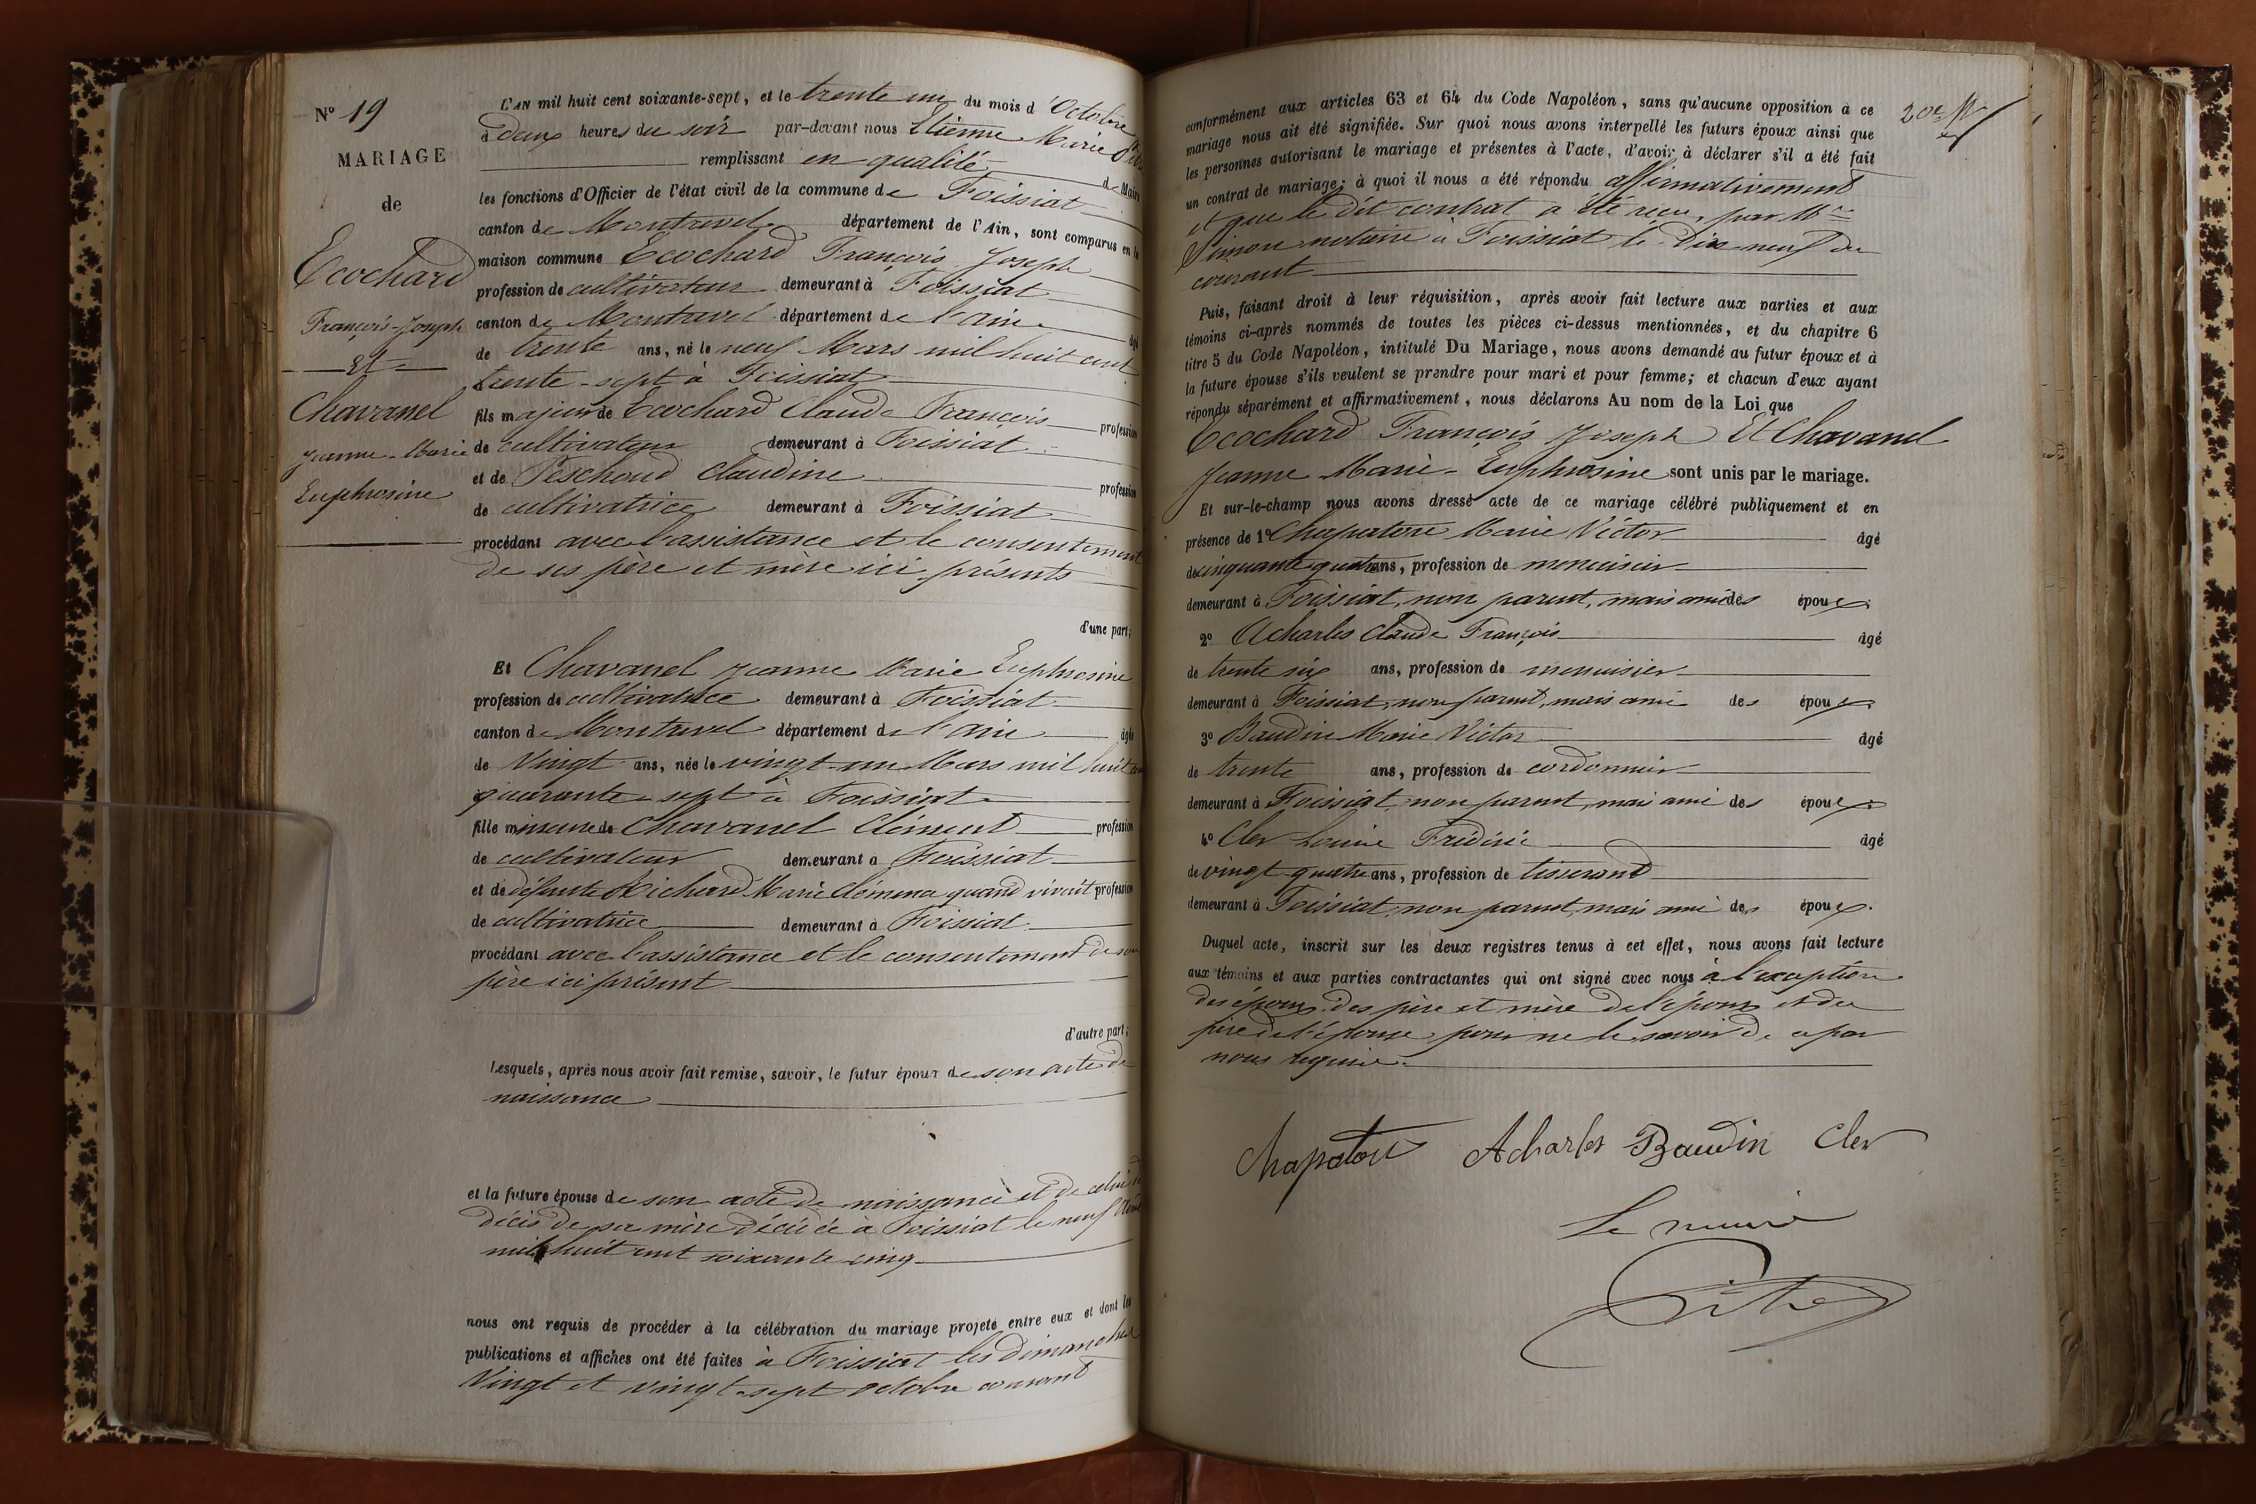 N° 19
MARIAGE
de
Ecochard
François-Joseph
Et
Chavanel
Jeanne-Marie
Euphrosine
L'AN mil huit cent soixante-sept, et le trente un du mois d'Octobre
à deux heures du soir par-devant nous Etienne Marie
remplissant en qualité de Maire
les fonctions d'Officier de l'état civil de la commune de Foissiat
canton de Montrevel département de l'Ain, sont comparus en la
maison commune Ecochard François Joseph
profession de cultivateur demeurant à Foissiat
canton de Montrevel département de l'ain âgé
de trente ans, né le neuf Mars mil huit cent
trente-sept à Foissiat
fils majeur de Ecochard Claude François profession
de cultivateur demeurant à Foissiat
et de Peschoud Claudine profession
de cultivatrice demeurant à Foissiat
procédant avec l'assistance et le consentement
de ses père et mère ici présents
d'une part;
Et Chavanel Jeanne Marie Euphrosine
profession de cultivatrice demeurant à Foissiat
canton de Montrevel département de l'ain âgée
de Vingt ans, née le vingt-un Mars mil huit cent
quarante-sept à Foissiat
fille mineure de Chavanel Clément profession
de cultivateur demeurant à Foissiat
et de défunte Richard Marie Clémence quand vivait profession
de cultivatrice demeurant à Foissiat
procédant avec l'assistance et le consentement de son
père ici présent
d'autre part;
Lesquels, après nous avoir fait remise, savoir, le futur époux de son acte de
naissance
et la future épouse de son acte de naissance et de celui de
décès de sa mère décédée à Foissiat le neuf
mil huit cent soixante cinq
nous ont requis de procéder à la célébration du mariage projeté entre eux et dont les
publications et affiches ont été faites à Foissiat les dimanches
Vingt et vingt-sept octobre courant
conformément aux articles 63 et 64 du Code Napoléon, sans qu'aucune opposition à ce
mariage nous ait été signifiée. Sur quoi nous avons interpellé les futurs époux ainsi que
les personnes autorisant le mariage et présentes à l'acte, d'avoir à déclarer s'il a été fait
un contrat de mariage; à quoi il nous a été répondu affirmativement
et que le dit contrat a été reçu par Me
Simon notaire à Foissiat le dix-neuf du
courant
Puis, faisant droit à leur réquisition, après avoir fait lecture aux parties et aux
témoins ci-après nommés de toutes les pièces ci-dessus mentionnées, et du chapitre 6
titre 5 du Code Napoléon, intitulé Du Mariage, nous avons demandé au futur époux et à
la future épouse s'ils veulent se prendre pour mari et pour femme; et chacun d'eux ayant
répondu séparément et affirmativement, nous déclarons Au nom de la Loi que
Ecochard François Joseph Et Chavanel
Jeanne Marie-Euphrosine sont unis par le mariage.
Et sur-le-champ nous avons dressé acte de ce mariage célébré publiquement et en
présence de 1° Chapatore Marie Victor âgé
de cinquante quatre ans, profession de menuisier
demeurant à Foissiat, non parent, mais ami des époux.
2° Acharles Claude François âgé
de trente six ans, profession de menuisier
demeurant à Foissiat, non parent, mais ami des époux.
3° Baudin Marie Victor âgé
de trente ans, profession de cordonnier
demeurant à Foissiat, non parent, mais ami des époux.
4° Cler Louis Frédéric âgé
de vingt quatre ans, profession de tisserand
demeurant à Foissiat, non parent, mais ami des époux.
Duquel acte, inscrit sur les deux registres tenus à cet effet, nous avons fait lecture
aux témoins et aux parties contractantes qui ont signé avec nous à l'exception
des époux, des père et mère de l'époux et du
père de l'épouse pour ne le savoir de ce par
nous requis
Acharles Baudin Cler
Le maire